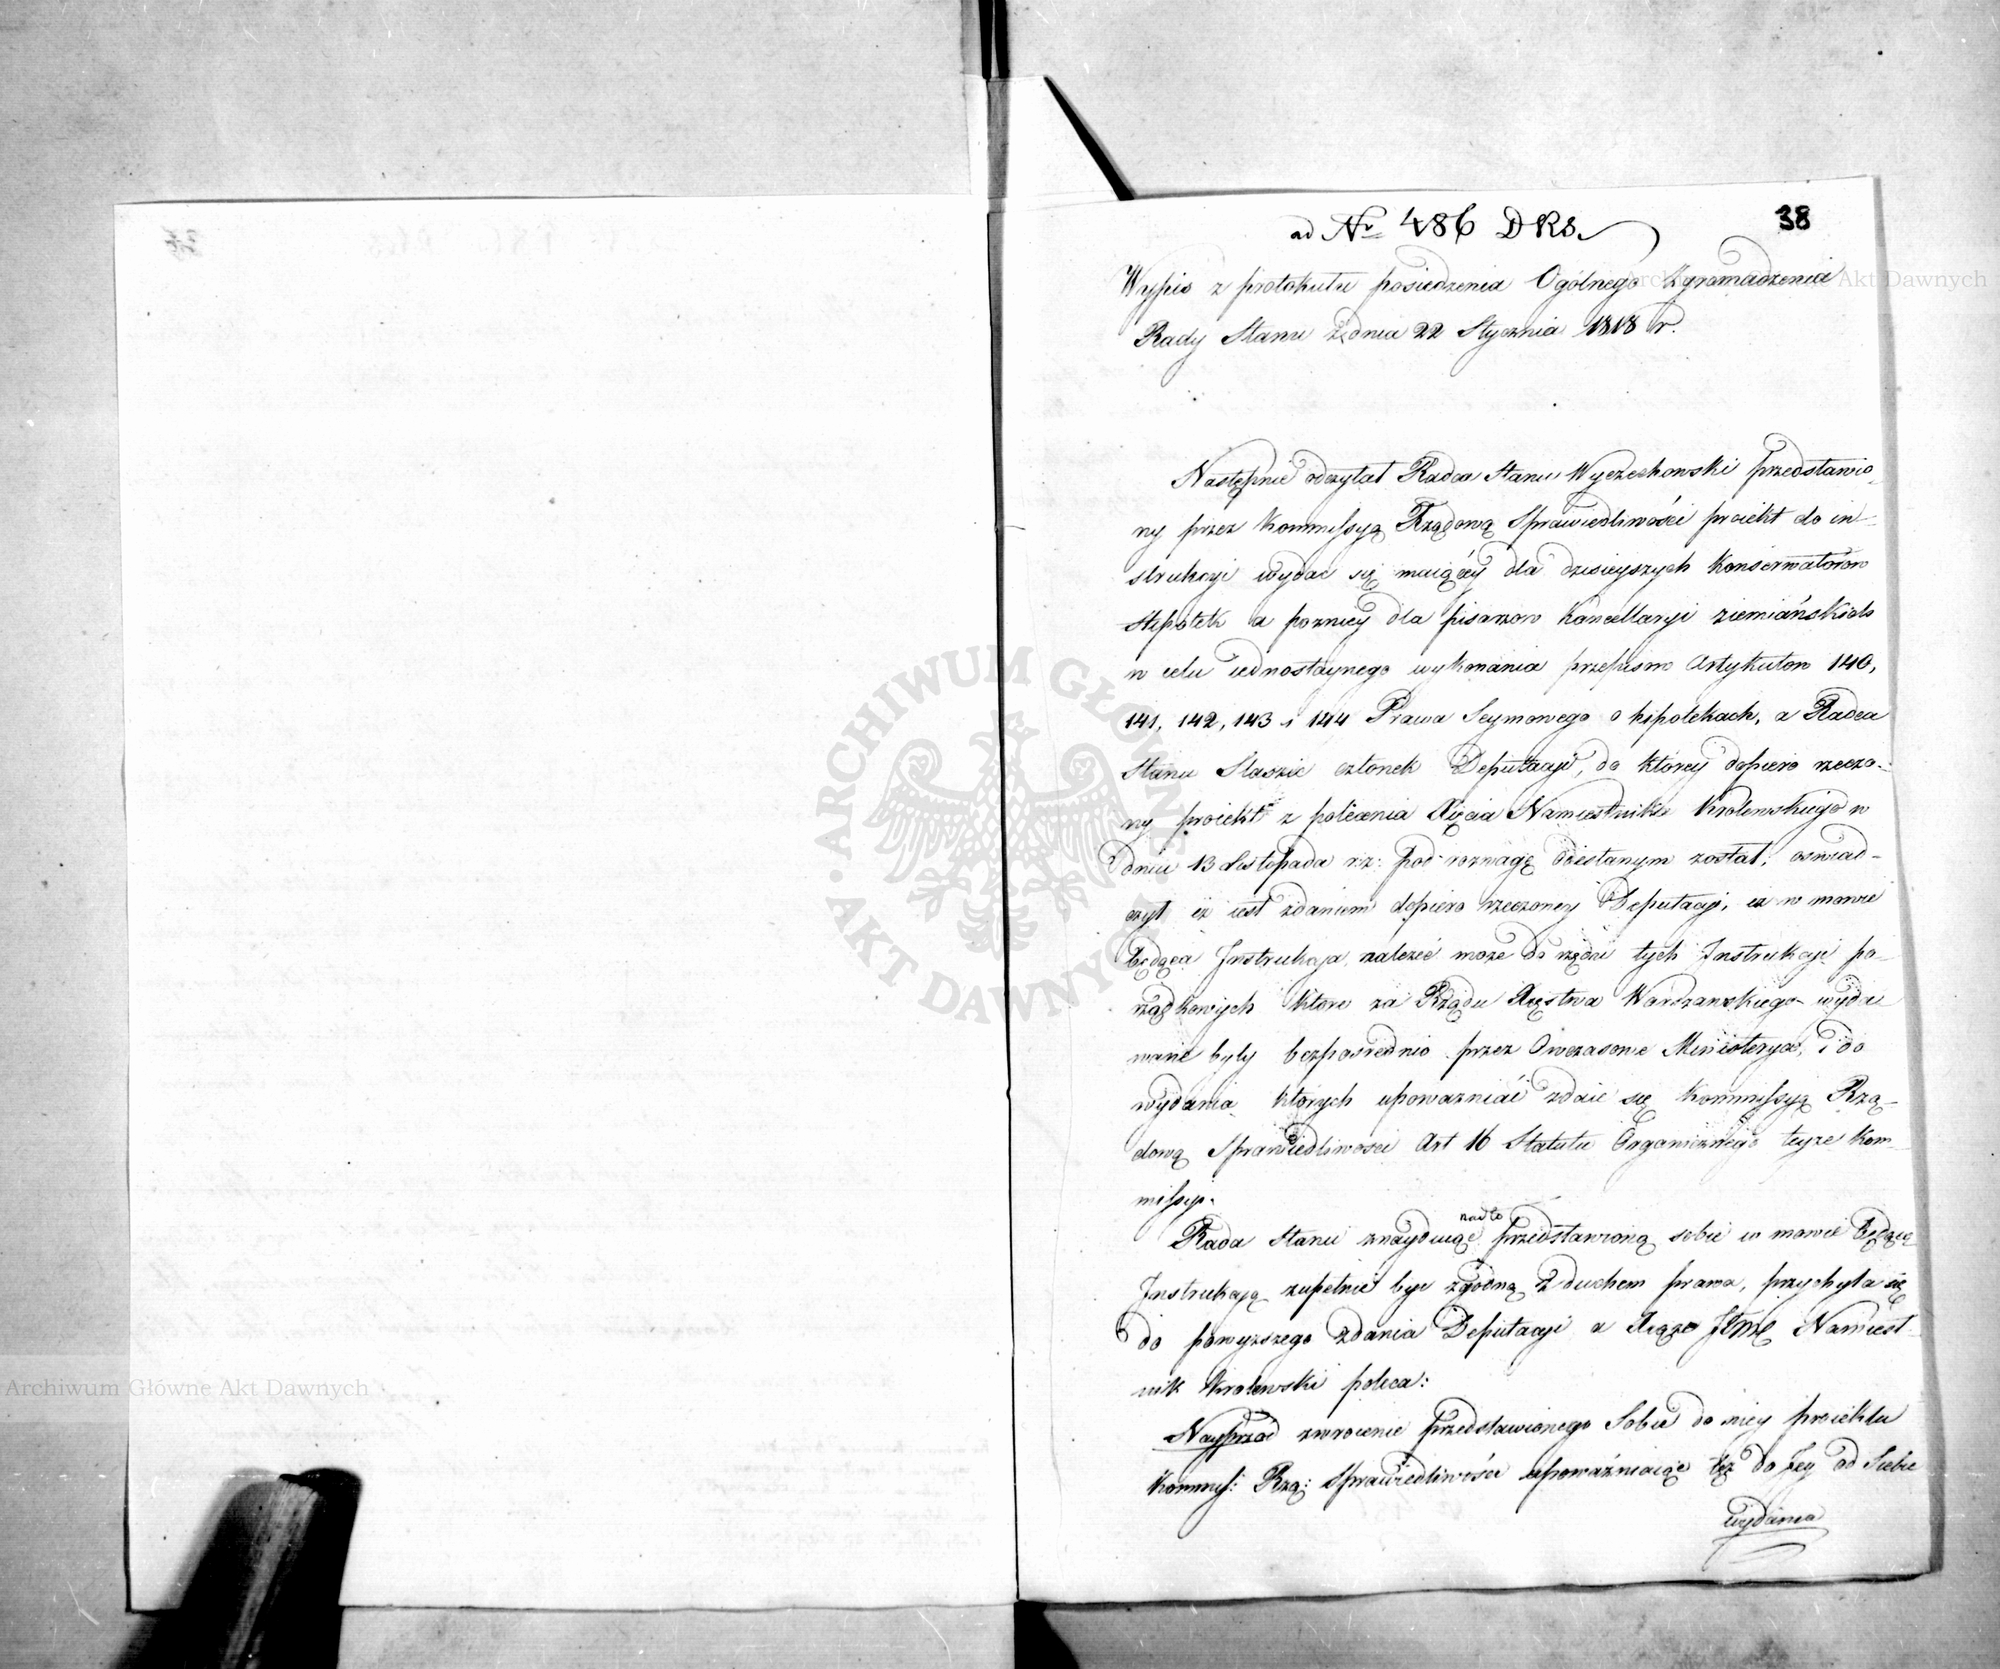 ad Nr 486 DKS.
38
Wypis z protokułu posiedzenia Ogólnego Zgromadzenia
Rady Stanu z dnia 22 Stycznia 1818 r.
Następnie odczytał Radca Stanu Wyczechowski przedstawio-
ny przez Kommissyą Rządową Sprawiedliwości proiekt do in-
strukcyi wydać się maiącey dla dzisieyszych Konserwatorow
Hypotek a pozniey dla pisarzow Kancellaryi ziemiańskich
w celu iednostaynego wykonania przepisow Artykułow 140,
141, 142, 143 i 144 Prawa Seymowego o hipotekach, a Radca
Stanu Staszic członek Deputacyi, do ktorey dopiero rzeczo-
ny proiekt z polecenia Xięcia Namiestnika Krolewskiego w
dniu 13 Listopada r.z: pod rozwagę odesłanym został; oswiad-
czył iż iest zdaniem dopiero rzeczoney Deputacyi, iż w mowie
będąca Instrukcya należeć może do rzędu tych Instrukcyi po-
rządkowych które za Rządu Xięstwa Warszawskiego wyda
wane były bezpośrednio przez Owczasowe Ministerya, i do
wydania których upowazniać zdaie się Kommissyą Rzą-
dową Sprawiedliwości Art 16 Statutu Organicznego teyże Kom-
missyi.
Rada Stanu znayduiąc nadto przedstawioną sobie w mowie będącą
Instrukcyą zupełnie być zgodną z duchem prawa, przychyla się
do powyższego zdania Deputacyi a Xiąże JPmć Namiest-
nik Krolewski poleca:
Nayprzód zwrocenie przedstawionego Sobie do niey proiektu
Kommis: Rzą: Sprawiedliwości upoważniaiąc Ią do Jey od Siebie
wydania
Archiwum Główne Akt Dawnych
Archiwum Główne Akt Dawnych
ARCHIWUM GŁÓWNE AKT DAWNYCH